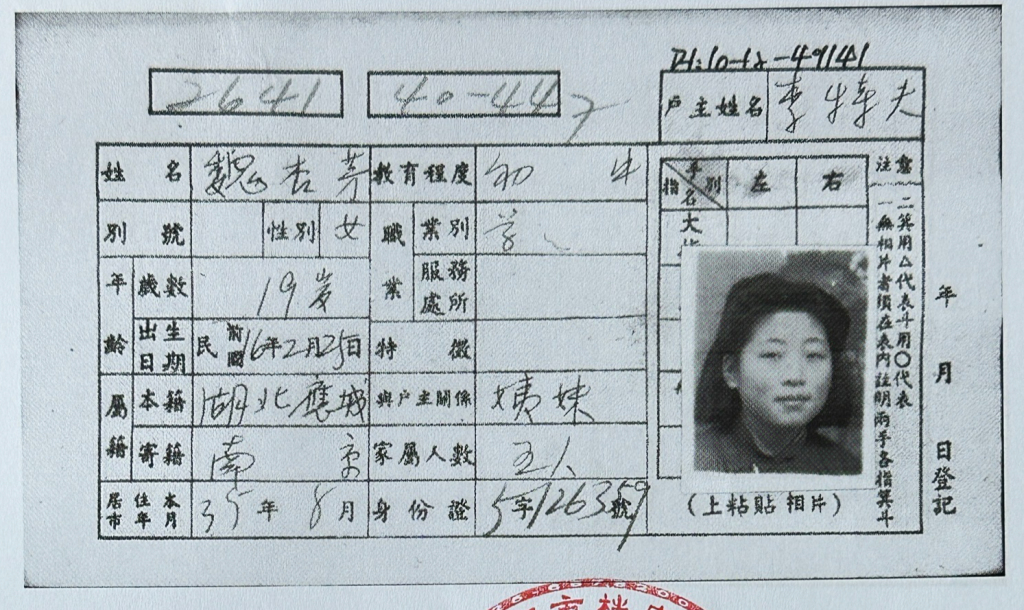 2641 40-44
户主姓名 李
姓名 魏杏芳 教育程度 初中
別號 性別 女 職業 業別
年齡 歲數 19岁 服務處所
出生日期 民國前 16年2月25日 特徵
屬籍 本籍 湖北應城 與户主關係 姨妹
寄籍 南京 家屬人數 五人
居住本市年月 35年8月 身份證 字126359號
手別 指名 左 右
大
注意
一無相片者須在表內註明兩手各指箕斗
二箕用△代表斗用○代表
(上粘貼相片)
年月日登記